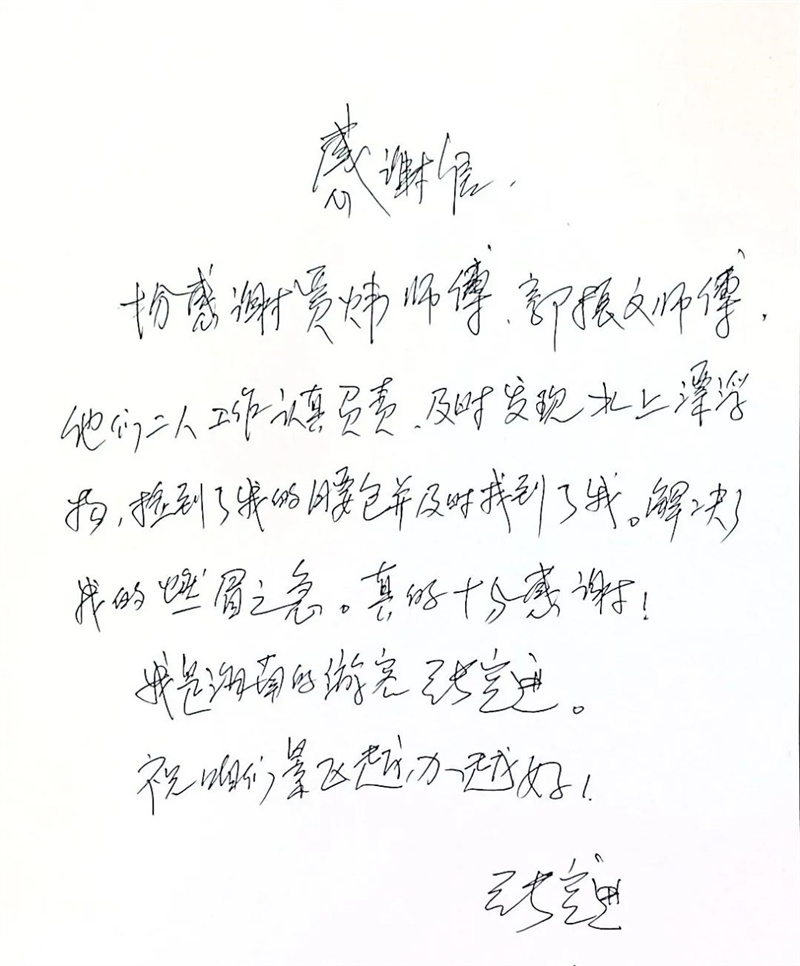 感谢信.
十分感谢贾炜师傅、郭振文师傅,
他们二人工作认真负责、及时发现水上漂浮
物,捡到了我的腰包并及时找到了我。解决了
我的燃眉之急。真的十分感谢!
我是湖南的游客
祝咱们景区越办越好!